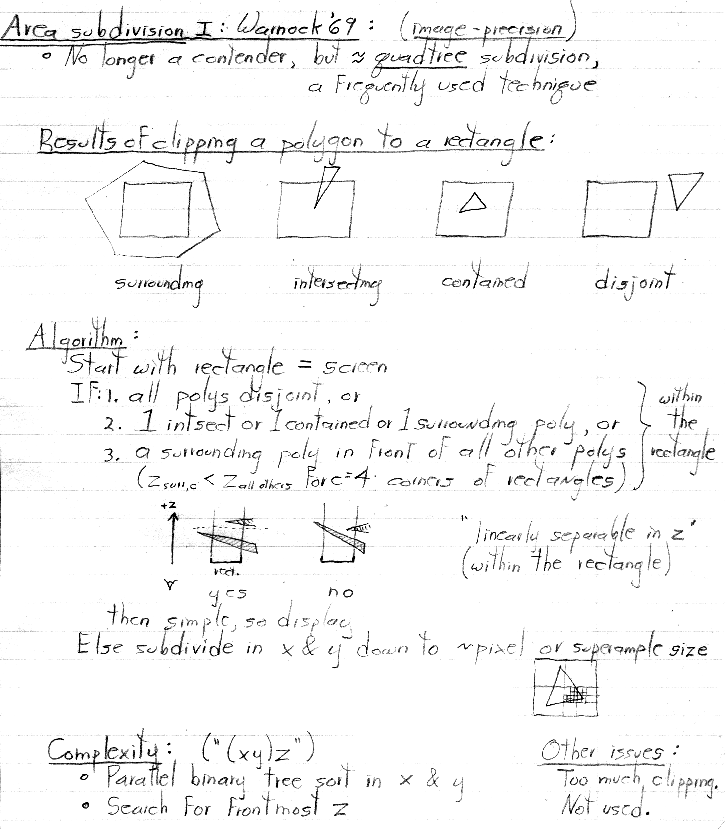 Area subdivision I: Warnock '69: (image-precision)
• No longer a contender, but ≈ quadtree subdivision,
a frequently used technique
Results of clipping a polygon to a rectangle:
surrounding intersecting contained disjoint
Algorithm:
Start with rectangle = screen
IF: 1. all polys disjoint, or
2. 1 intsect or 1 contained or 1 surrounding poly, or
3. a surrounding poly in front of all other polys
(Zsurr,c < Zall others for c=4 corners of rectangles)
within
the
rectangle
+z
rect.
yes no
"linearly separable in z"
(within the rectangle)
then simple, so display
Else subdivide in x & y down to ~pixel or supersample size
Complexity: ("(xy)z")
• Parallel binary tree sort in x & y
• Search for frontmost z
Other issues:
Too much clipping.
Not used.